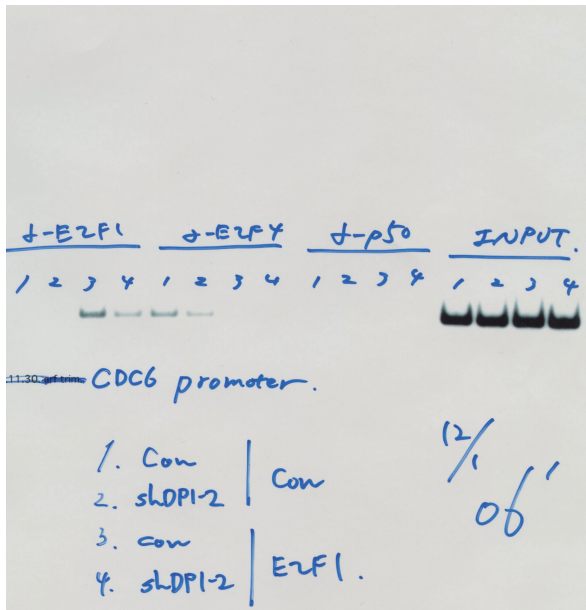 α-E2F1 α-E2F4 α-p50 INPUT.
1 2 3 4 1 2 3 4 1 2 3 4 1 2 3 4
11.30. arf trim CDC6 promoter.
1. Con
2. shDP1-2
Con
3. con
4. shDP1-2
E2F1.
12/1
06'